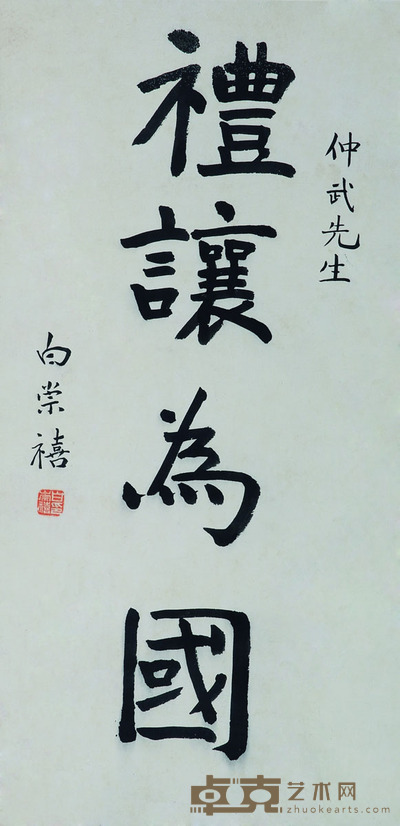 仲武先生
禮讓為國
白崇禧
白崇禧印
卓克艺术网
zhuokearts.com